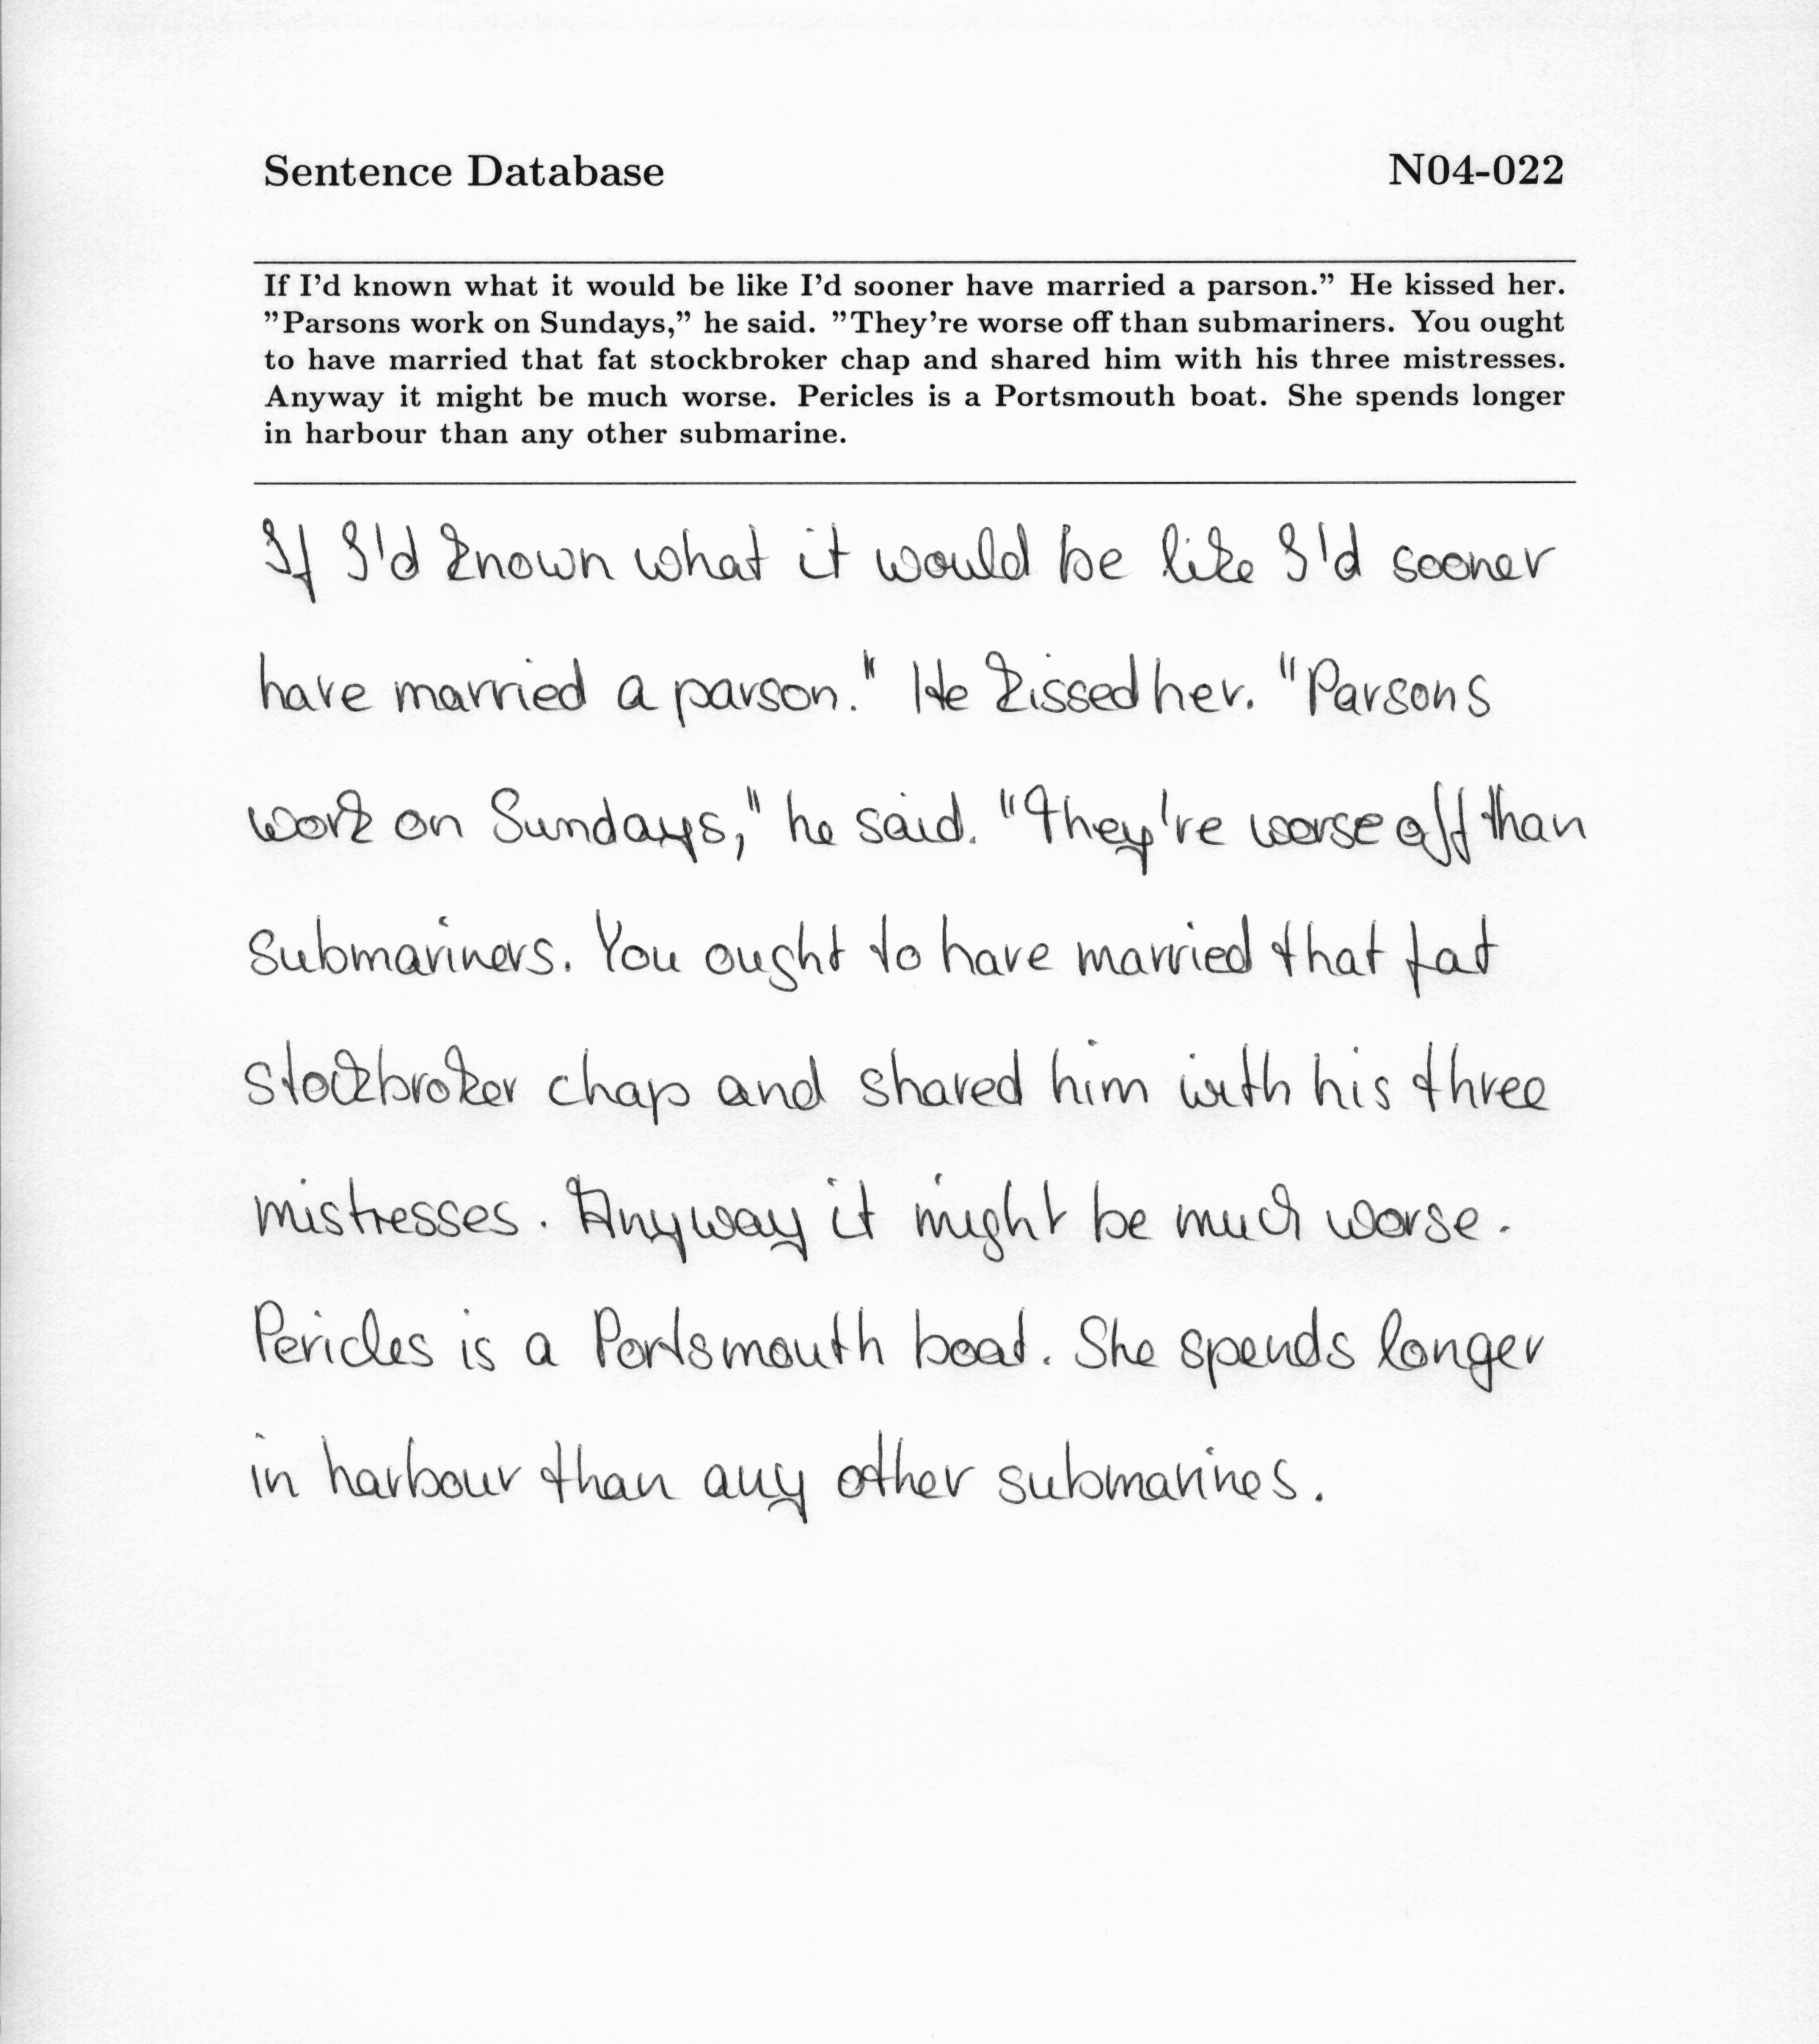 Sentence Database N04-022
If I'd known what it would be like I'd sooner have married a parson.” He kissed her.
”Parsons work on Sundays,” he said. ”They're worse off than submariners. You ought
to have married that fat stockbroker chap and shared him with his three mistresses.
Anyway it might be much worse. Pericles is a Portsmouth boat. She spends longer
in harbour than any other submarine.
If I'd known what it would be like I'd sooner
have married a parson." He kissed her. "Parsons
work on Sundays," he said. "They're worse off than
submariners. You ought to have married that fat
stockbroker chap and shared him with his three
mistresses. Anyway it might be much worse.
Pericles is a Portsmouth boat. She spends longer
in harbour than any other submarines.